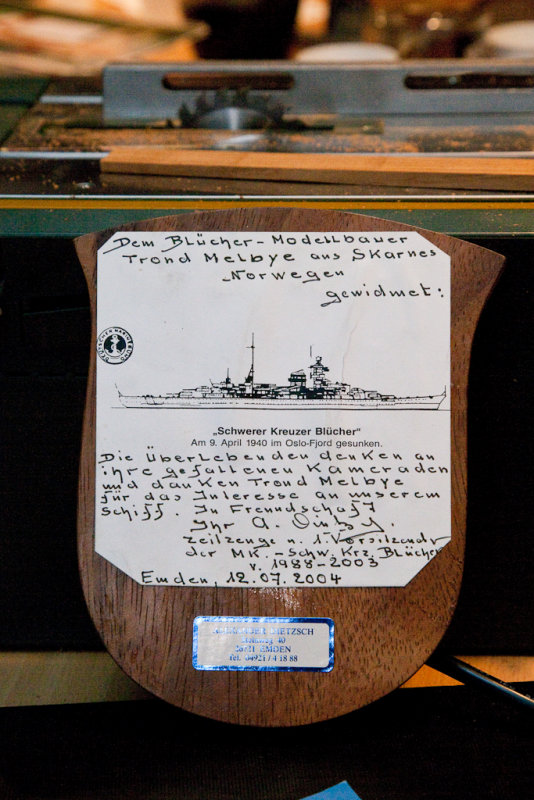 Dem Blücher-Modellbauer
Trond Melbye aus Skarnes
Norwegen
gewidmet:
DEUTSCHER MARINEBUND
„Schwerer Kreuzer Blücher“
Am 9. April 1940 im Oslo-Fjord gesunken.
Die Überlebenden denken an
ihre gefallenen Kameraden
und danken Trond Melbye
für das Interesse an unserem
Schiff. In Freundschaft
Ihr A.
Zeitzeuge u. 1. Vorsitzender
der MK.-Schw. Krz. Blücher
v. 1988-2003
Emden, 12.07.2004
DIETZSCH
40
26721 EMDEN
Tel. 04921 / 4 18 88